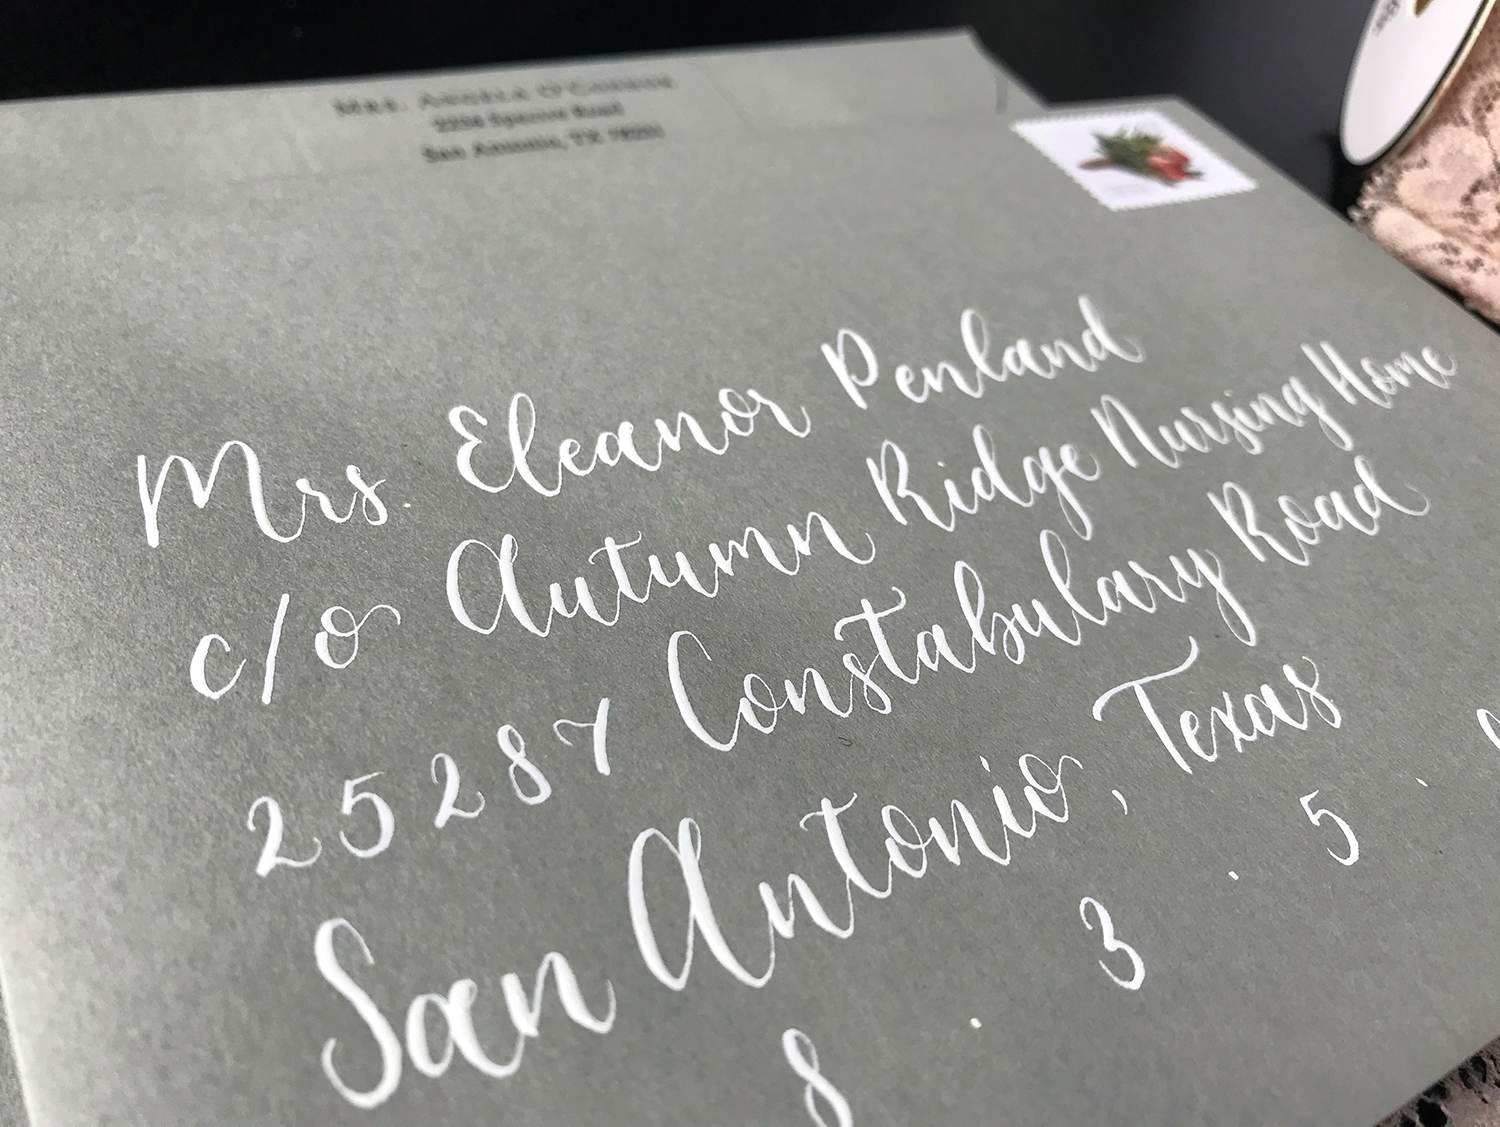 Mrs. Angela O'Connor
San Antonio, TX
Mrs. Eleanor Penland
c/o Autumn Ridge Nursing Home
25287 Constabulary Road
San Antonio, Texas
8 . 3 . 5 .